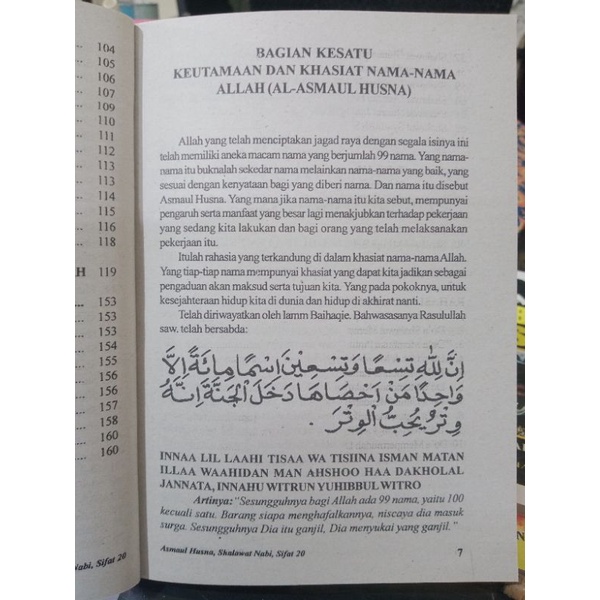 104
105
106
107
109
110
111
112
113
113
114
115
116
118
H 119
153
153
154
154
155
156
156
157
158
160
160
Nabi, Sifat 20
BAGIAN KESATU
KEUTAMAAN DAN KHASIAT NAMA-NAMA
ALLAH (AL-ASMAUL HUSNA)
Allah yang telah menciptakan jagad raya dengan segala isinya ini
telah memiliki aneka macam nama yang berjumlah 99 nama. Yang nama-
nama itu buknalah sekedar nama melainkan nama-nama yang baik, yang
sesuai dengan kenyataan bagi yang diberi nama. Dan nama itu disebut
Asmaul Husna. Yang mana jika nama-nama itu kita sebut, mempunyai
pengaruh serta manfaat yang besar lagi menakjubkan terhadap pekerjaan
yang sedang kita lakukan dan bagi orang yang telah melaksanakan
pekerjaan itu.
Itulah rahasia yang terkandung di dalam khasiat nama-nama Allah.
Yang tiap-tiap nama mempunyai khasiat yang dapat kita jadikan sebagai
pengaduan akan maksud serta tujuan kita. Yang pada pokoknya, untuk
kesejahteraan hidup kita di dunia dan hidup di akhirat nanti.
Telah diriwayatkan oleh Iamm Baihaqie. Bahwasasanya Rasulullah
saw. telah bersabda:
اِنَّ لِلّٰهِ تِسْعًا وَتِسْعِيْنَ اِسْمًا مِائَةً اِلَّا
وَاحِدًا مَنْ اَحْصَاهَا دَخَلَ الْجَنَّةَ اِنَّهُ
وِتْرٌ وَيُحِبُّ الْوِتْرَ .
INNAA LIL LAAHI TISAA WA TISIINA ISMAN MATAN
ILLAA WAAHIDAN MAN AHSHOO HAA DAKHOLAL
JANNATA, INNAHU WITRUN YUHIBBUL WITRO
Artinya: "Sesungguhnya bagi Allah ada 99 nama, yaitu 100
kecuali satu. Barang siapa menghafalkannya, niscaya dia masuk
surga. Sesungguhnya Dia itu ganjil, Dia menyukai yang ganjil."
Asmaul Husna, Shalawat Nabi, Sifat 20 7